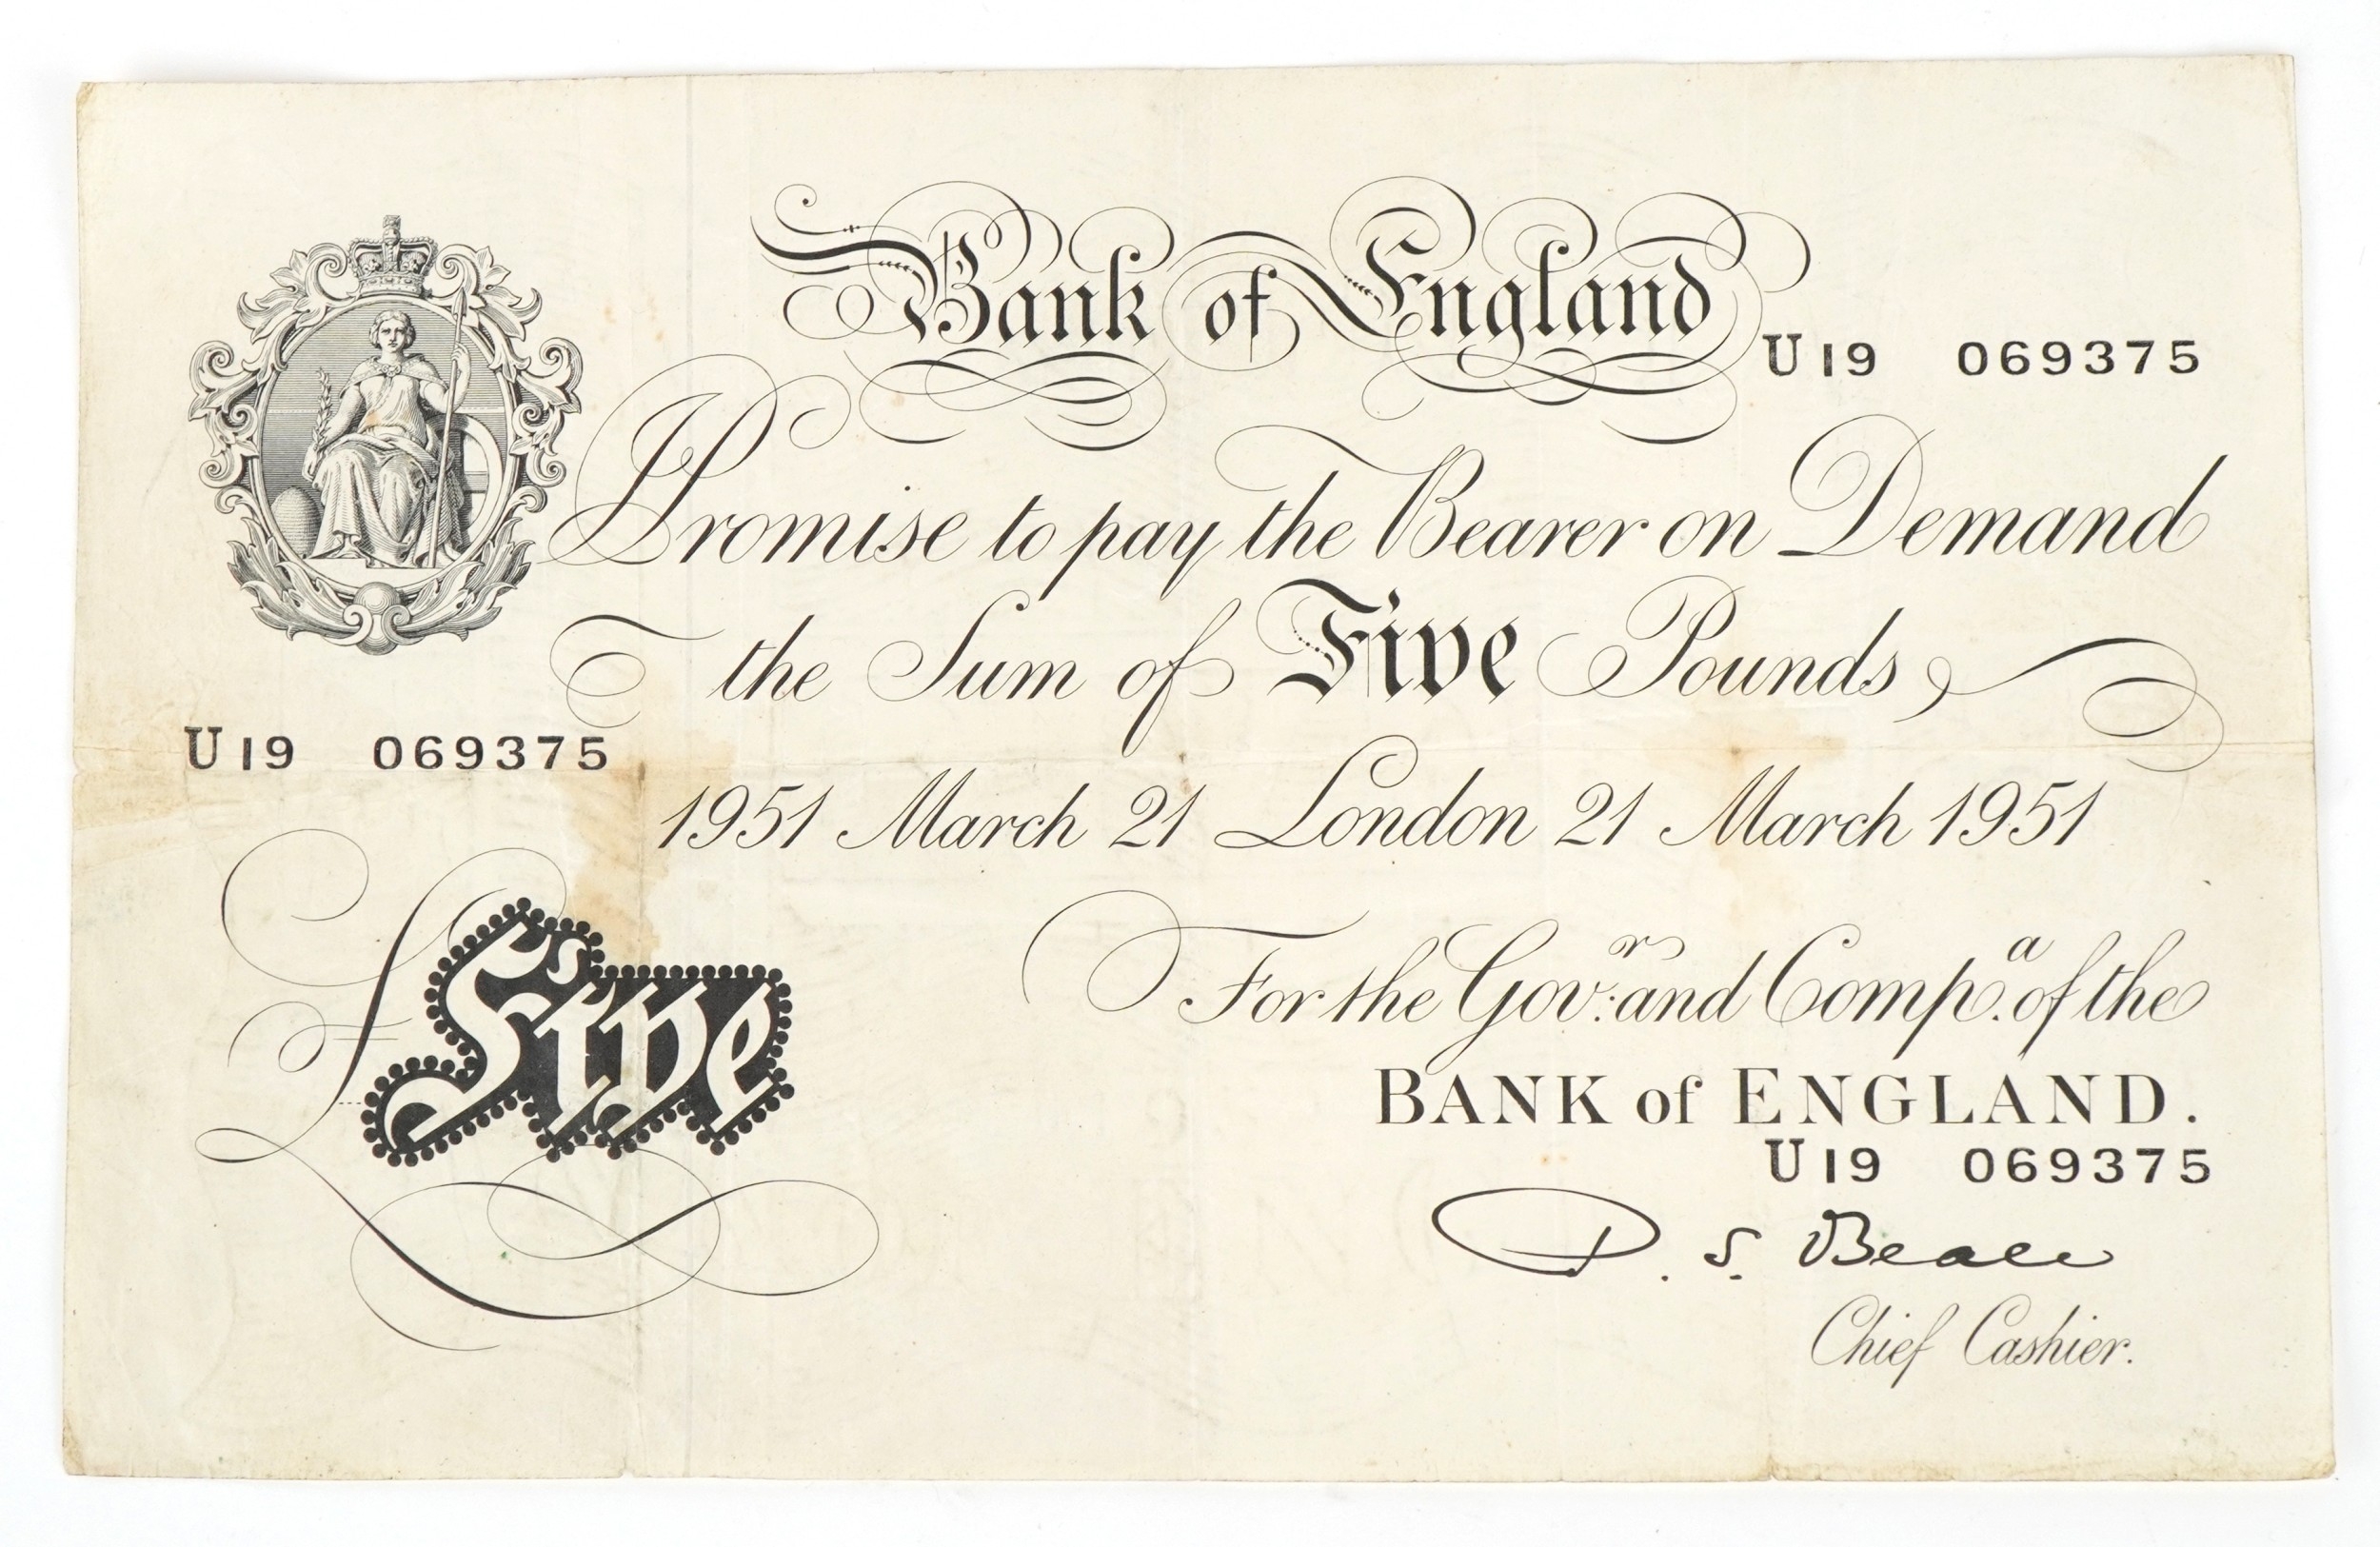 Bank of England
U19 069375
I Promise to pay the Bearer on Demand
the Sum of Five Pounds
U19 069375
1951 March 21 London 21 March 1951
£Five
For the Gov.r and Comp.a of the
BANK of ENGLAND.
U19 069375
P. S. Beale
Chief Cashier.